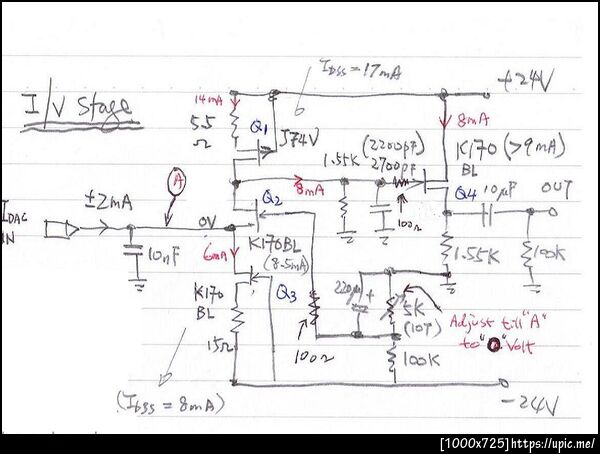 I/V Stage
IDSS = 17mA
+24V
14mA
5.5
Ω
Q1
J74V
8mA
K170 (>9mA)
BL
1.55K
(2200pF)
2700pF
100Ω
Q4
10µF
OUT
8mA
IDAC
IN
±2mA
A
0V
Q2
K170BL
(8.5mA)
10nF
6mA
Q3
K170
BL
15Ω
100Ω
220µ
+
5K
(10T)
100K
1.55K
100K
Adjust till "A"
to "0" Volt
(IDSS = 8mA)
-24V
[1000x725]https://upic.me/